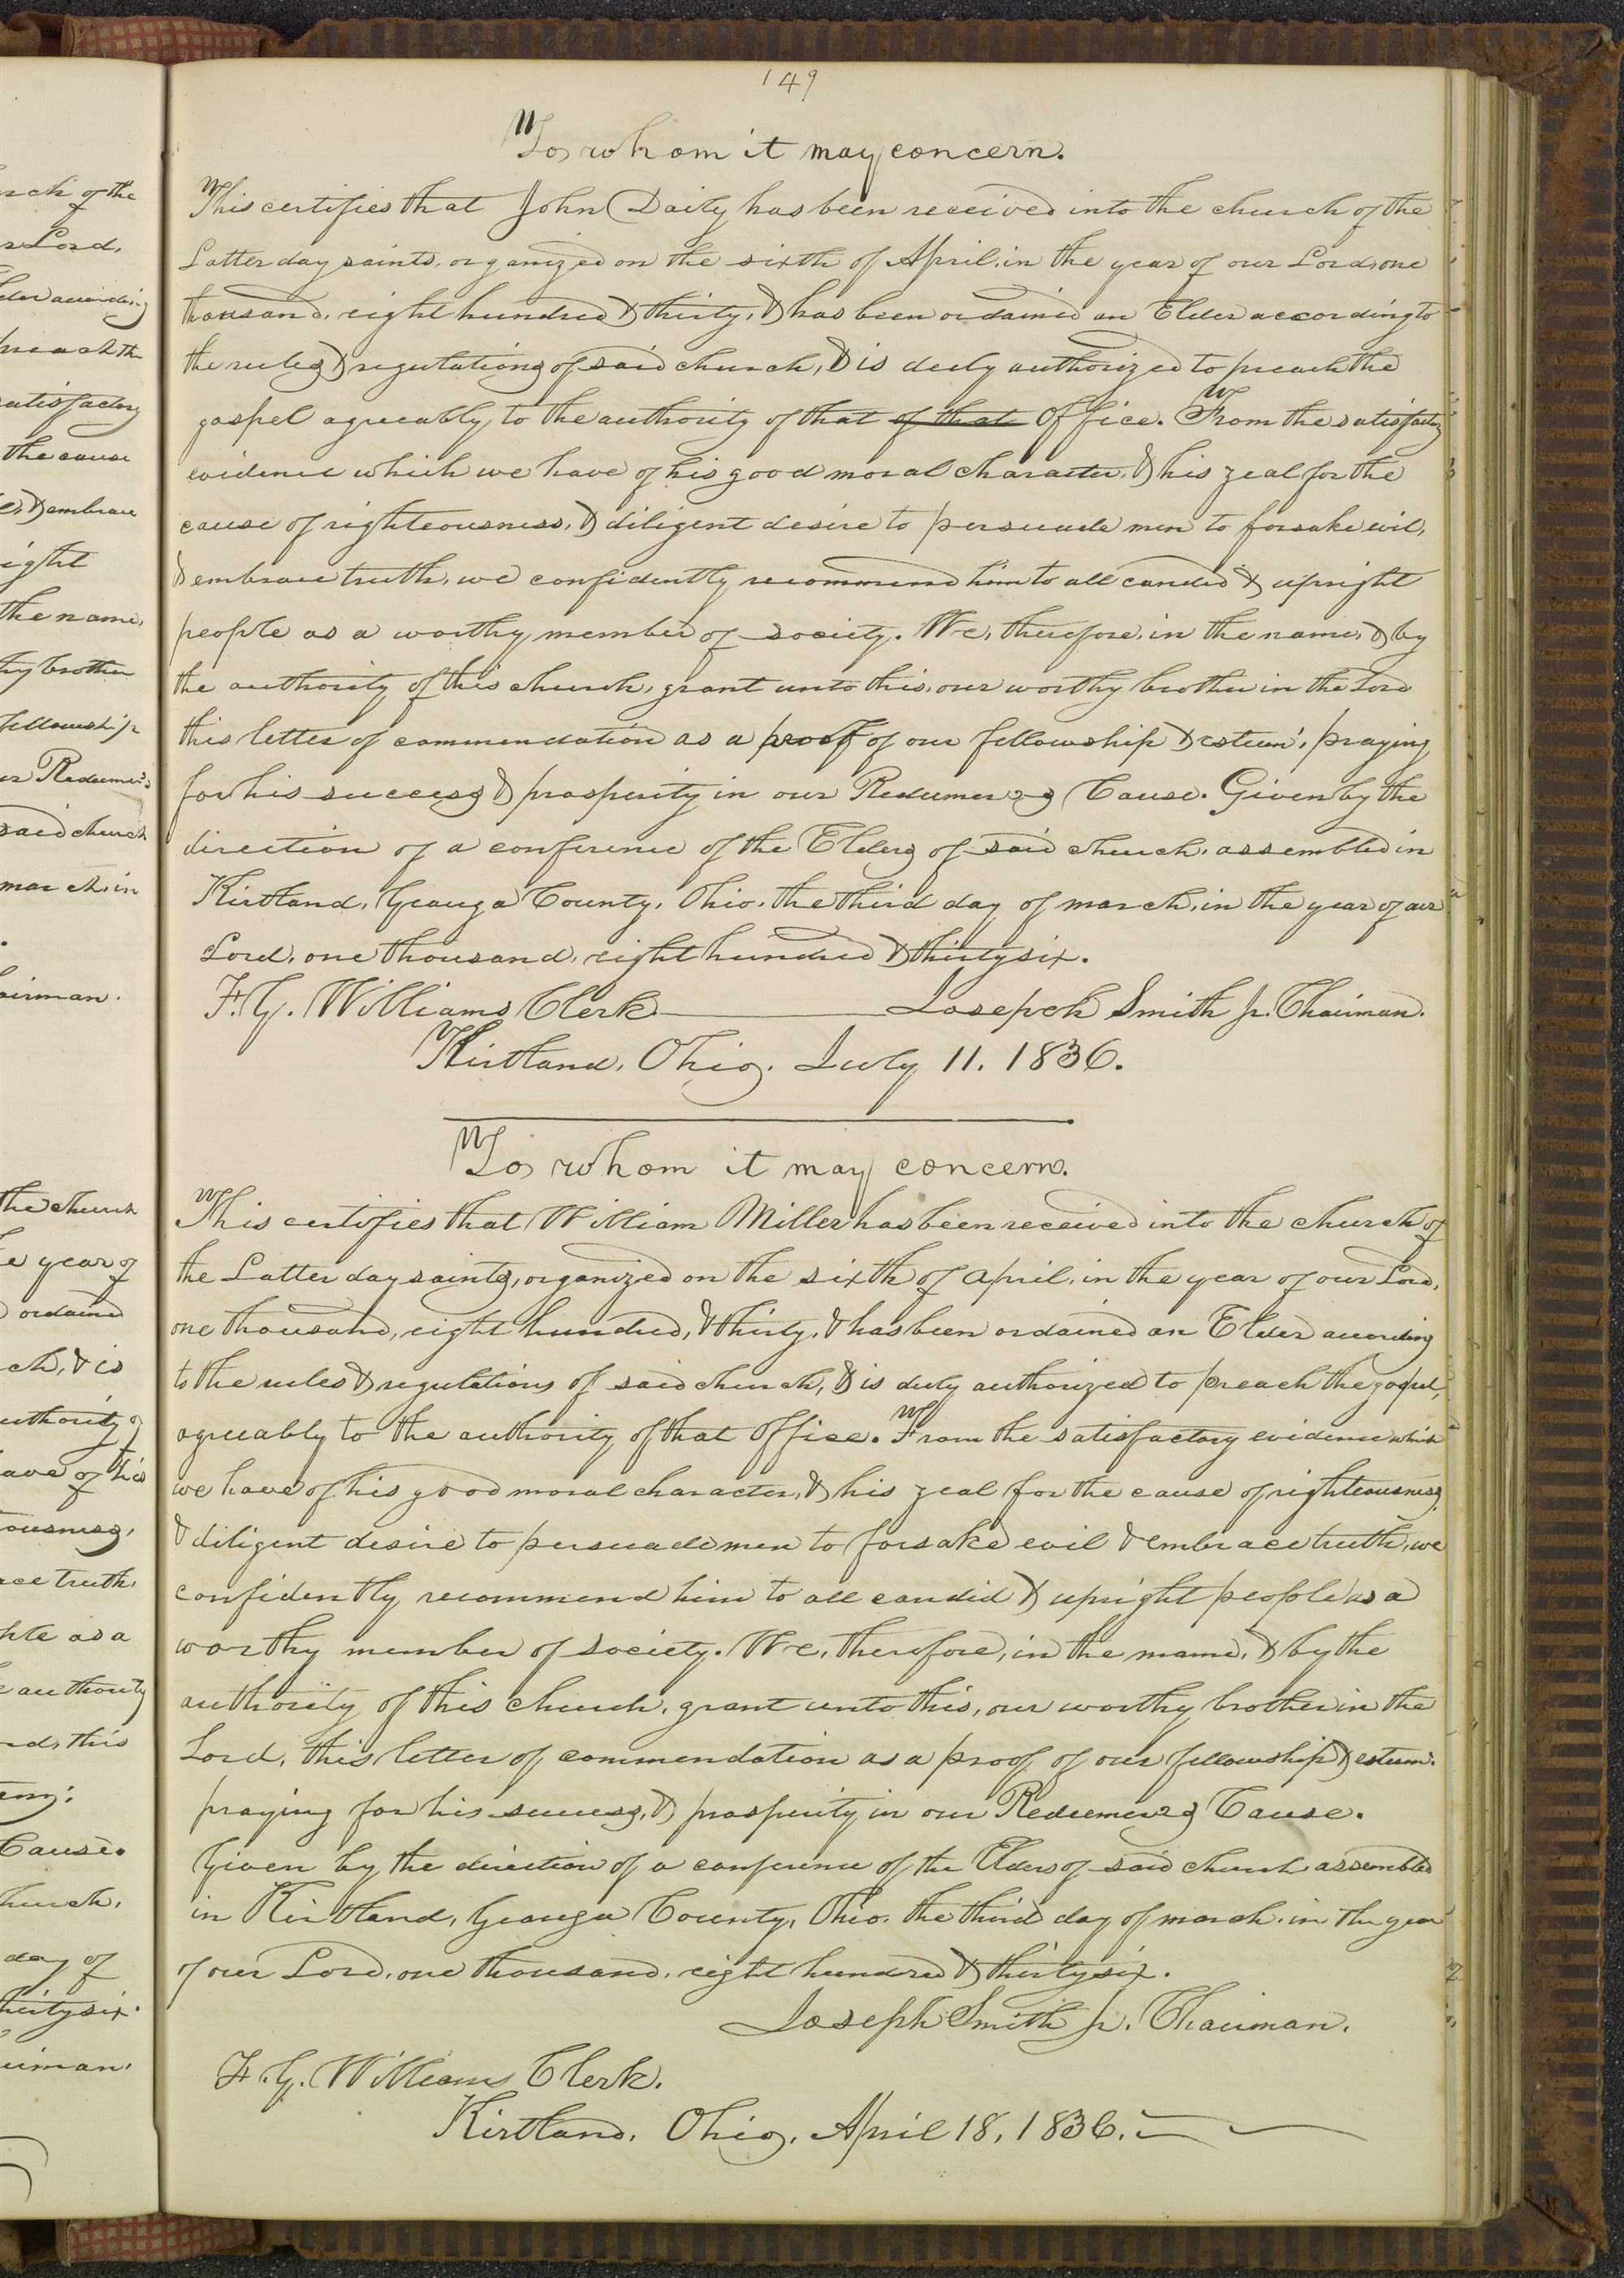 149
To whom it may concern.
This certifies that John Daily has been received into the church of the
Latter day saints, organized on the sixth of April, in the year of our Lord, one
thousand, eight hundred & thirty, & has been ordained an Elder according to
the rules & regulations of said church, & is duly authorized to preach the
gospel agreeably to the authority of that of that Office. From the satisfactory
evidence which we have of his good moral character, & his zeal for the
cause of righteousness, & diligent desire to persuade men to forsake evil,
& embrace truth, we confidently recommend him to all candid & upright
people as a worthy member of society. We, therefore, in the name, & by
the authority of this church, grant unto this, our worthy brother in the Lord
this letter of commendation as a proof of our fellowship & esteem, praying
for his success & prosperity in our Redeemer's Cause. Given by the
direction of a conference of the Elders of said church, assembled in
Kirtland, Geauga County, Ohio, the third day of march, in the year of our
Lord, one thousand, eight hundred & thirty six.
F. G. Williams Clerk Joseph Smith jr. Chairman.
Kirtland, Ohio, July 11. 1836.
To whom it may concern.
This certifies that William Miller has been received into the church of
the Latter day saints, organized on the sixth of april, in the year of our Lord,
one thousand, eight hundred, & thirty, & has been ordained an Elder according
to the rules & regulations of said church, & is duly authorized to preach the gospel,
agreeably to the authority of that Office. From the satisfactory evidence which
we have of his good moral character, & his zeal for the cause of righteousness,
& diligent desire to persuade men to forsake evil & embrace truth, we
confidently recommend him to all candid & upright people as a
worthy member of society. We, therefore, in the name, & by the
authority of this church, grant unto this, our worthy brother in the
Lord, this letter of commendation as a proof of our fellowship & esteem,
praying for his success, & prosperity in our Redeemer's Cause.
Given by the direction of a conference of the Elders of said church assembled
in Kirtland, Geauga County, Ohio, the third day of march, in the year
of our Lord, one thousand, eight hundred & thirty six.
Joseph Smith jr. Chairman.
F. G. Williams Clerk.
Kirtland, Ohio, April 18, 1836.